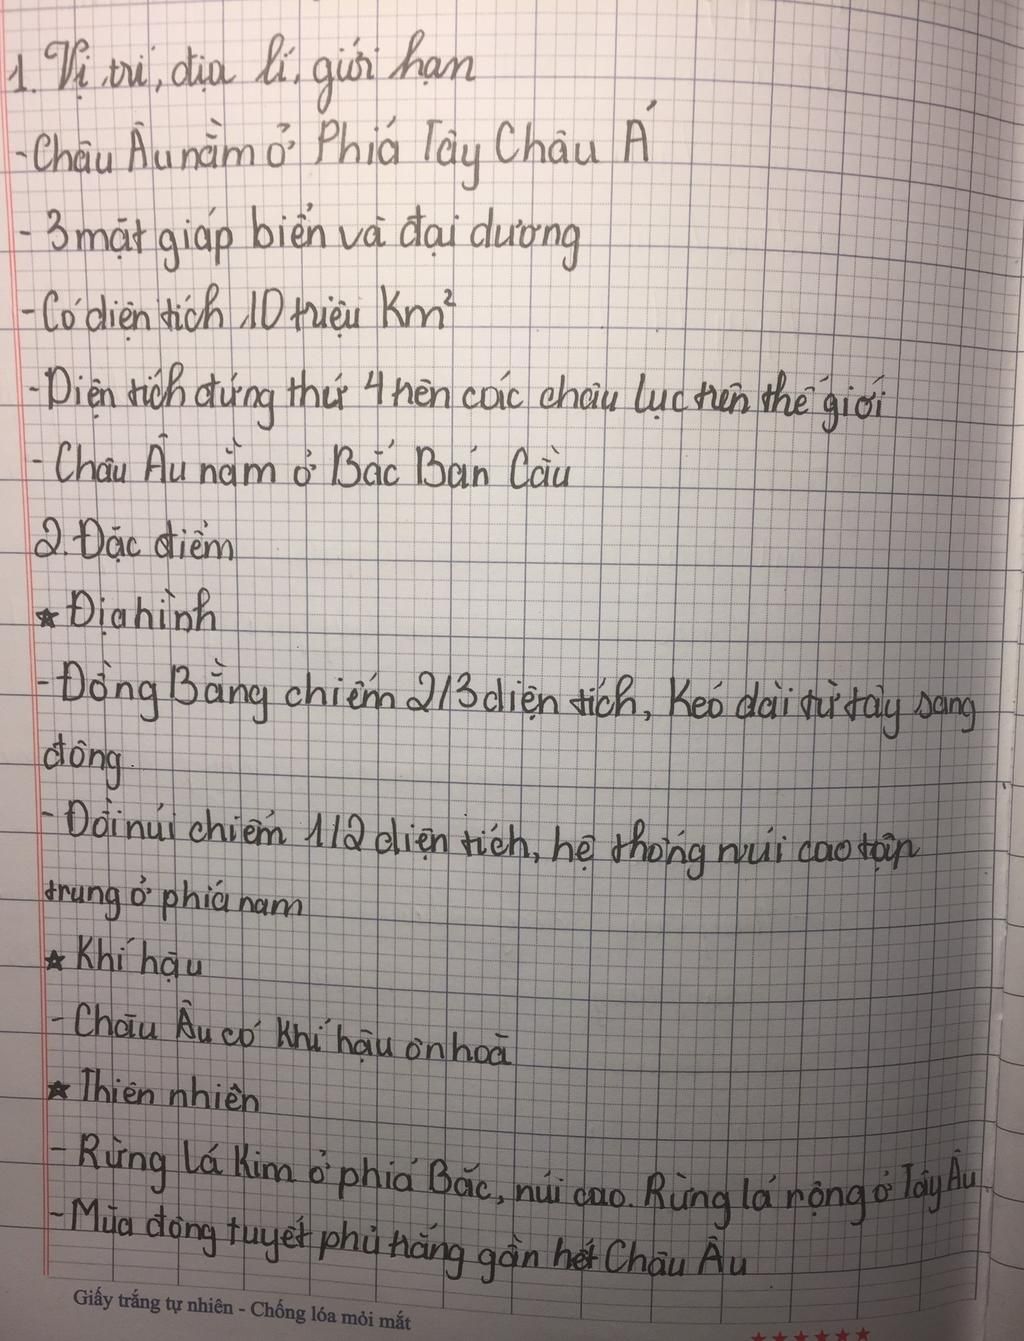 1. Vị trí, địa lí, giới hạn
- Châu Âu nằm ở Phiá Tây Châu Á
- 3 mặt giáp biển và đại dương
- Có diện tích 10 triệu Km²
- Diện tích đứng thứ 4 trên các châu lục trên thế giới
- Châu Âu nằm ở Bắc Bán Cầu
2. Đặc điểm
★ Địa hình
- Đồng Bằng chiếm 2/3 diện tích, Kéo dài từ tây sang
đông
- Đồi núi chiếm 1/2 diện tích, hệ thống núi cao tập
trung ở phiá nam
★ Khí hậu
- Châu Âu có Khí hậu ôn hoà
★ Thiên nhiên
- Rừng Lá Kim ở phiá Bắc, núi cao. Rừng lá rộng ở Tây Âu
- Mùa đông tuyết phủ trắng gần hết Châu Âu
Giấy trắng tự nhiên - Chống lóa mỏi mắt